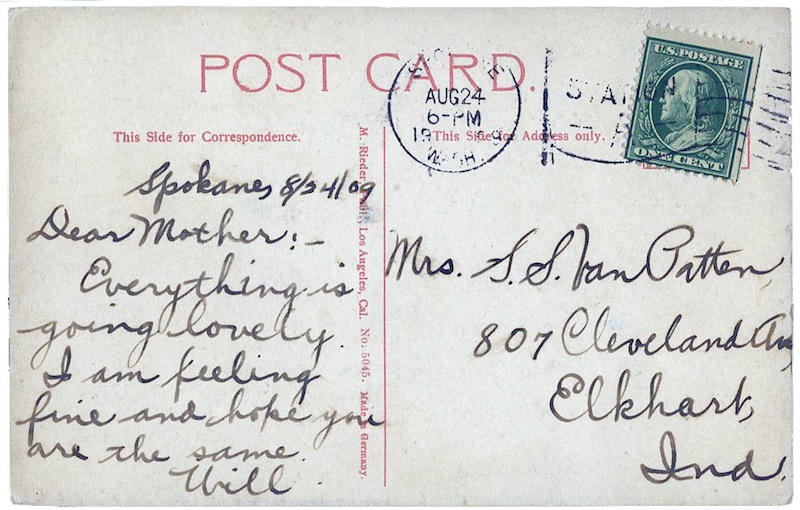 POST CARD.
AUG 24
6-PM
19
WASH.
U.S. POSTAGE
ONE CENT
This Side for Correspondence.
This Side for Address only.
Spokane, 8/24/09
Dear Mother:-
Everything is
going lovely.
I am feeling
fine and hope you
are the same.
Will
M. Rieder, Los Angeles, Cal. No. 5045. Made in Germany.
Mrs. S. S. Van Patten,
807 Cleveland Av,
Elkhart,
Ind.